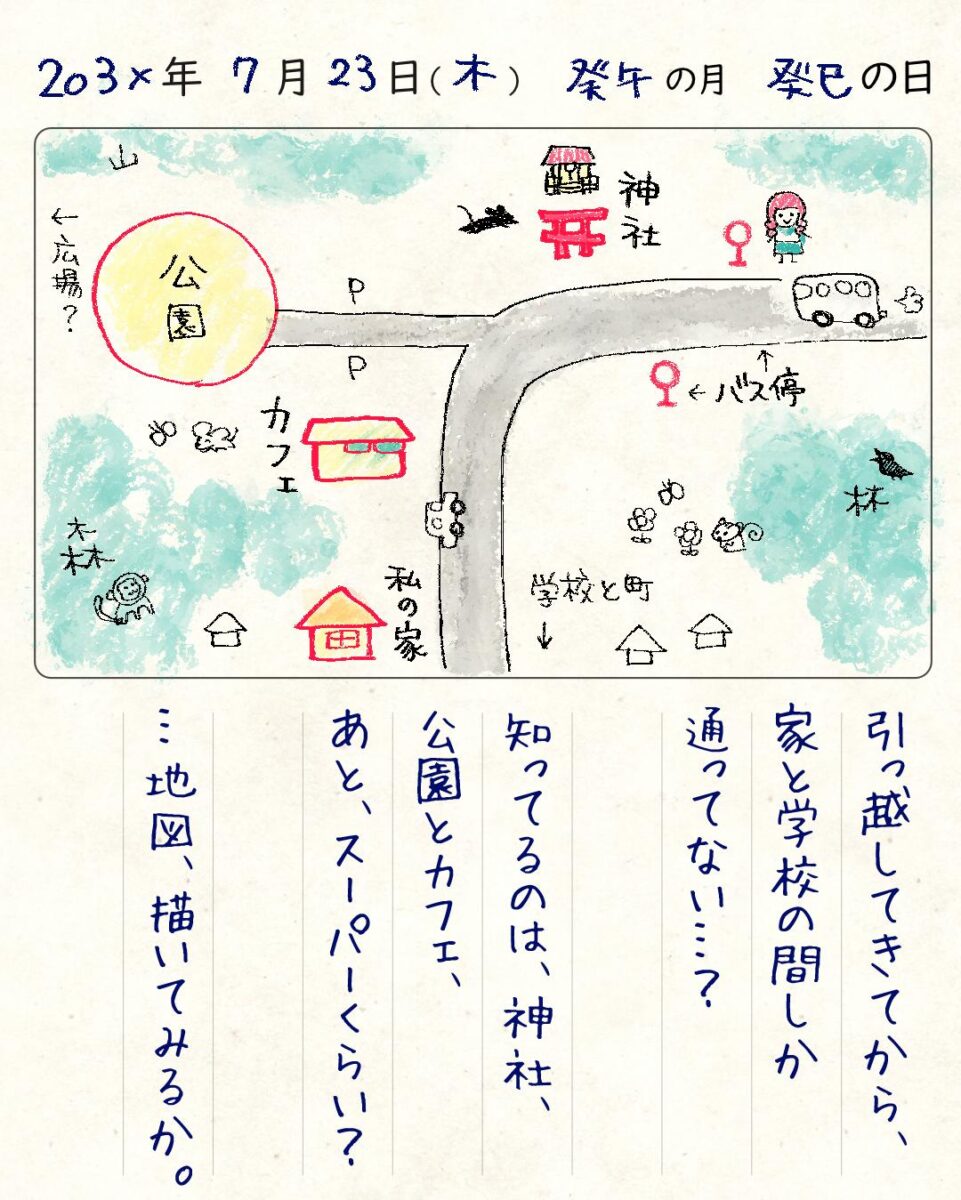 203x年 7月23日(木) 癸午の月 癸巳の日
山
←広場?
公園
P
P
神社
←バス停
↑
カフェ
林
森
私の家
学校と町
↓
引っ越してきてから、
家と学校の間しか
通ってない…?
知ってるのは、神社、
公園とカフェ、
あと、スーパーくらい?
…地図、描いてみるか。